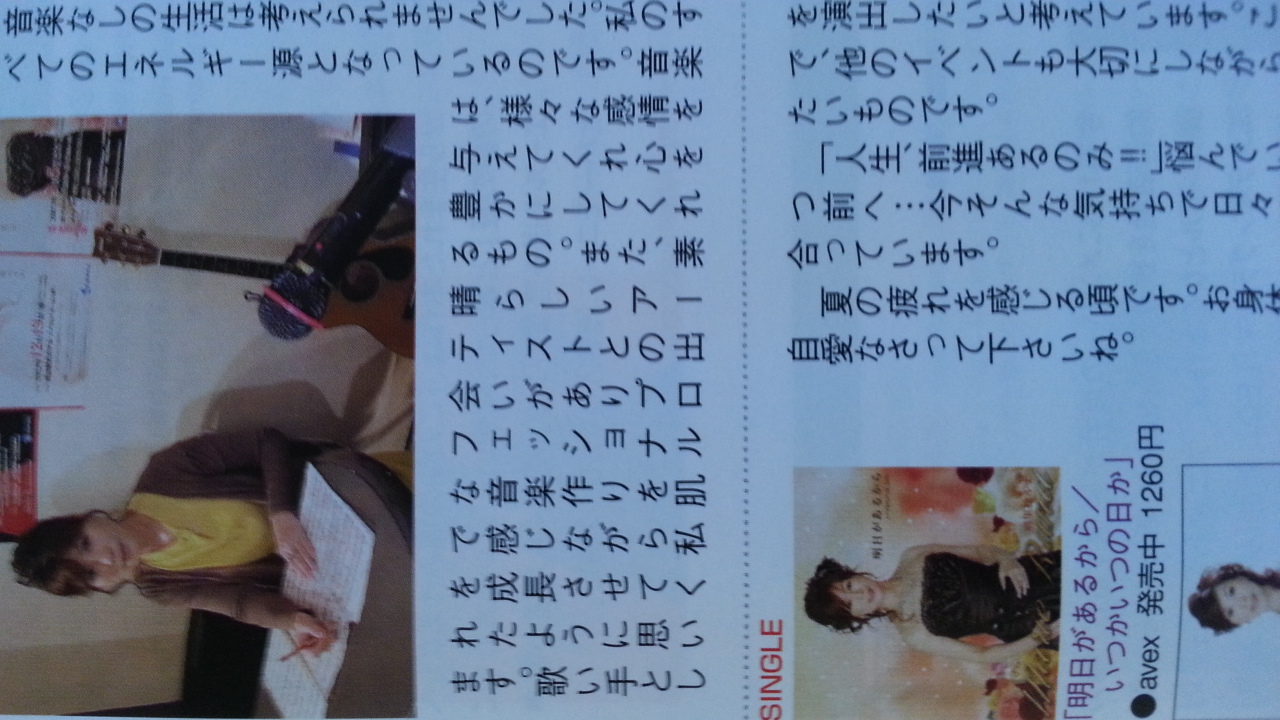 音楽なしの生活は考えられませんでした。私のす
べてのエネルギー源となっているのです。音楽
は、様々な感情を
与えてくれ心を
豊かにしてくれ
るもの。また、素
晴らしいアー
ティストとの出
会いがありプロ
フェッショナル
な音楽作りを肌
で感じながら私
を成長させてく
れたように思い
ます。歌い手とし
を演出したいと考えています。こ
で、他のイベントも大切にしながら
たいものです。
「人生、前進あるのみ!!!」悩んでい
つ前へ…今そんな気持ちで日々
合っています。
夏の疲れを感じる頃です。お身体
自愛なさって下さいね。
SINGLE
明日があるから
「明日があるから／
いつかいつの日か」
●avex 発売中 1260円